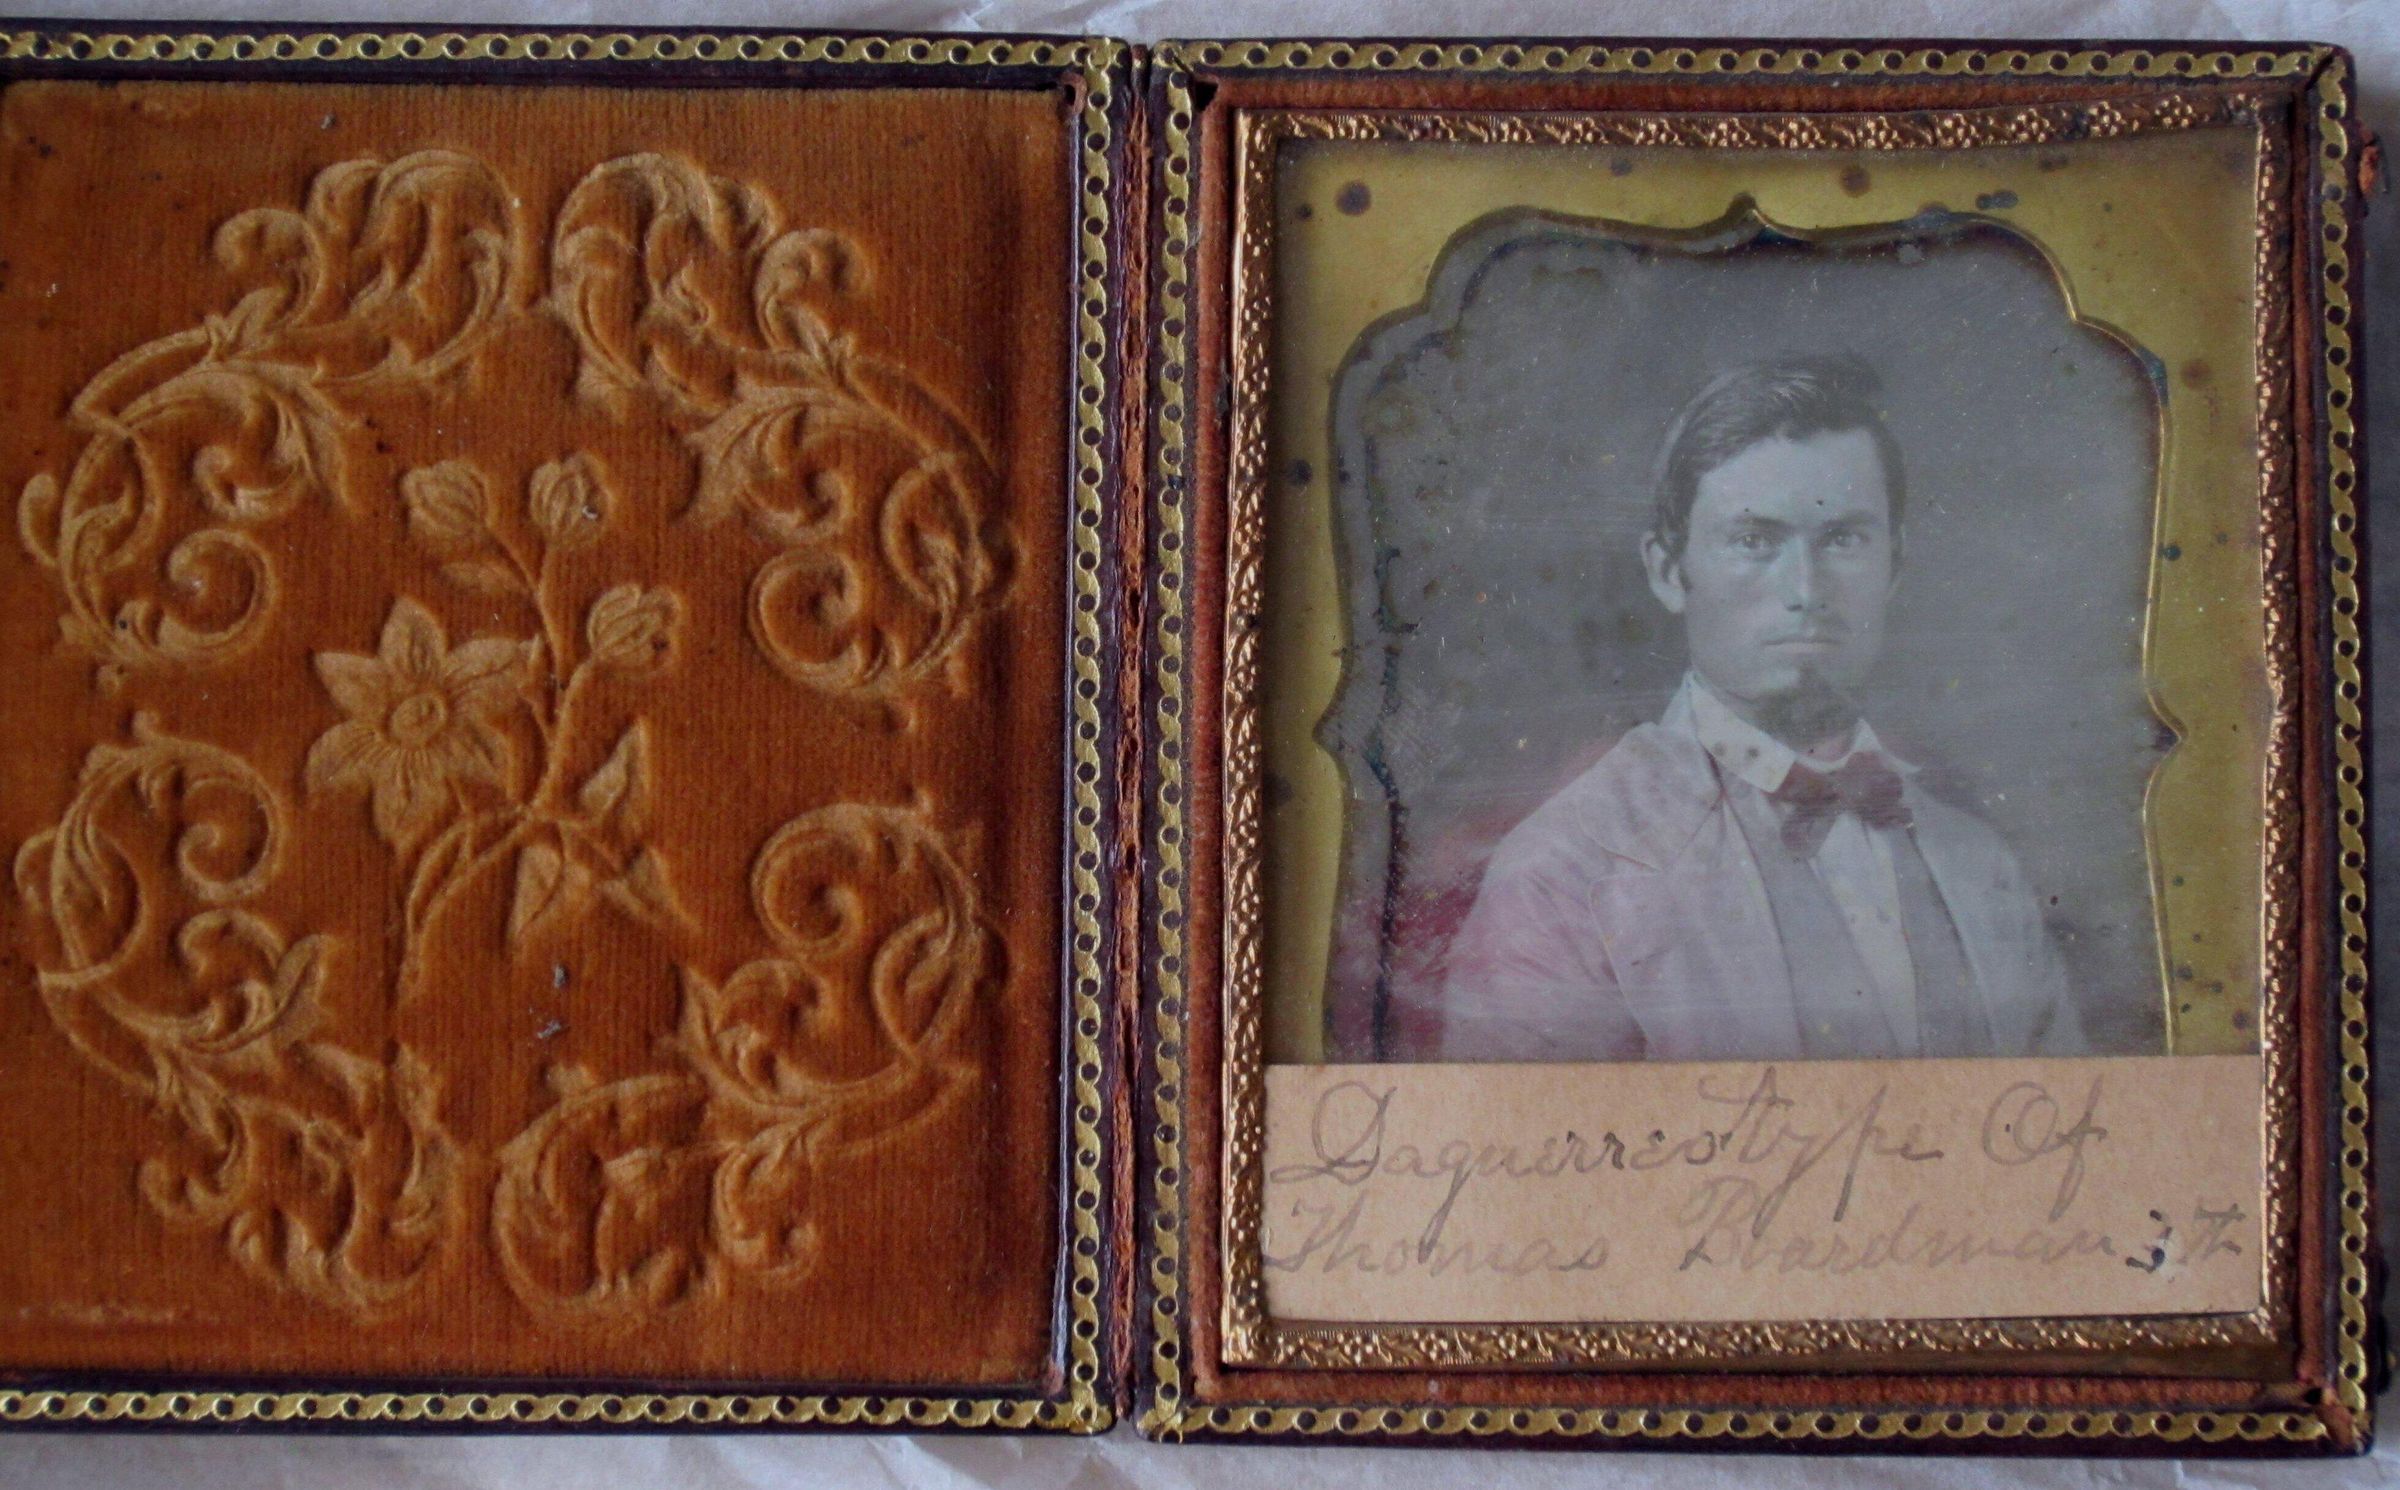 Daguerreotype Of
Thomas Boardman 3th